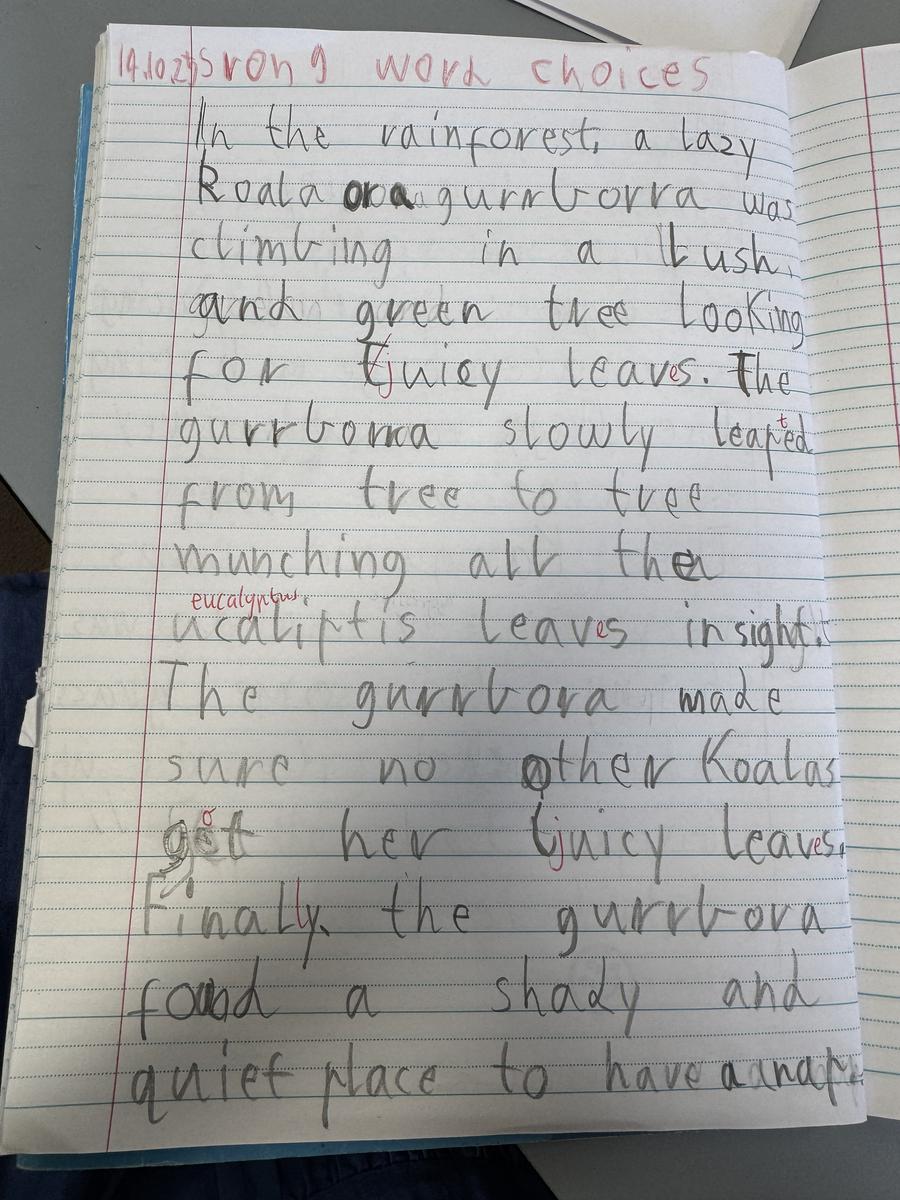 19.10.25 Srong word choices
In the rainforest, a lazy
Koala or a gurrborra was
climbing in a bush,
and green tree looking
for juicy leaves. The
gurrborra slowly leapted
from tree to tree
munching all the
eucalyptus.
ucaliptis leaves in sight.
The gurrrbora made
sure no other Koalas
got her juicy leaves.
Finally, the gurrbora
found a shady and
quiet place to have a nap